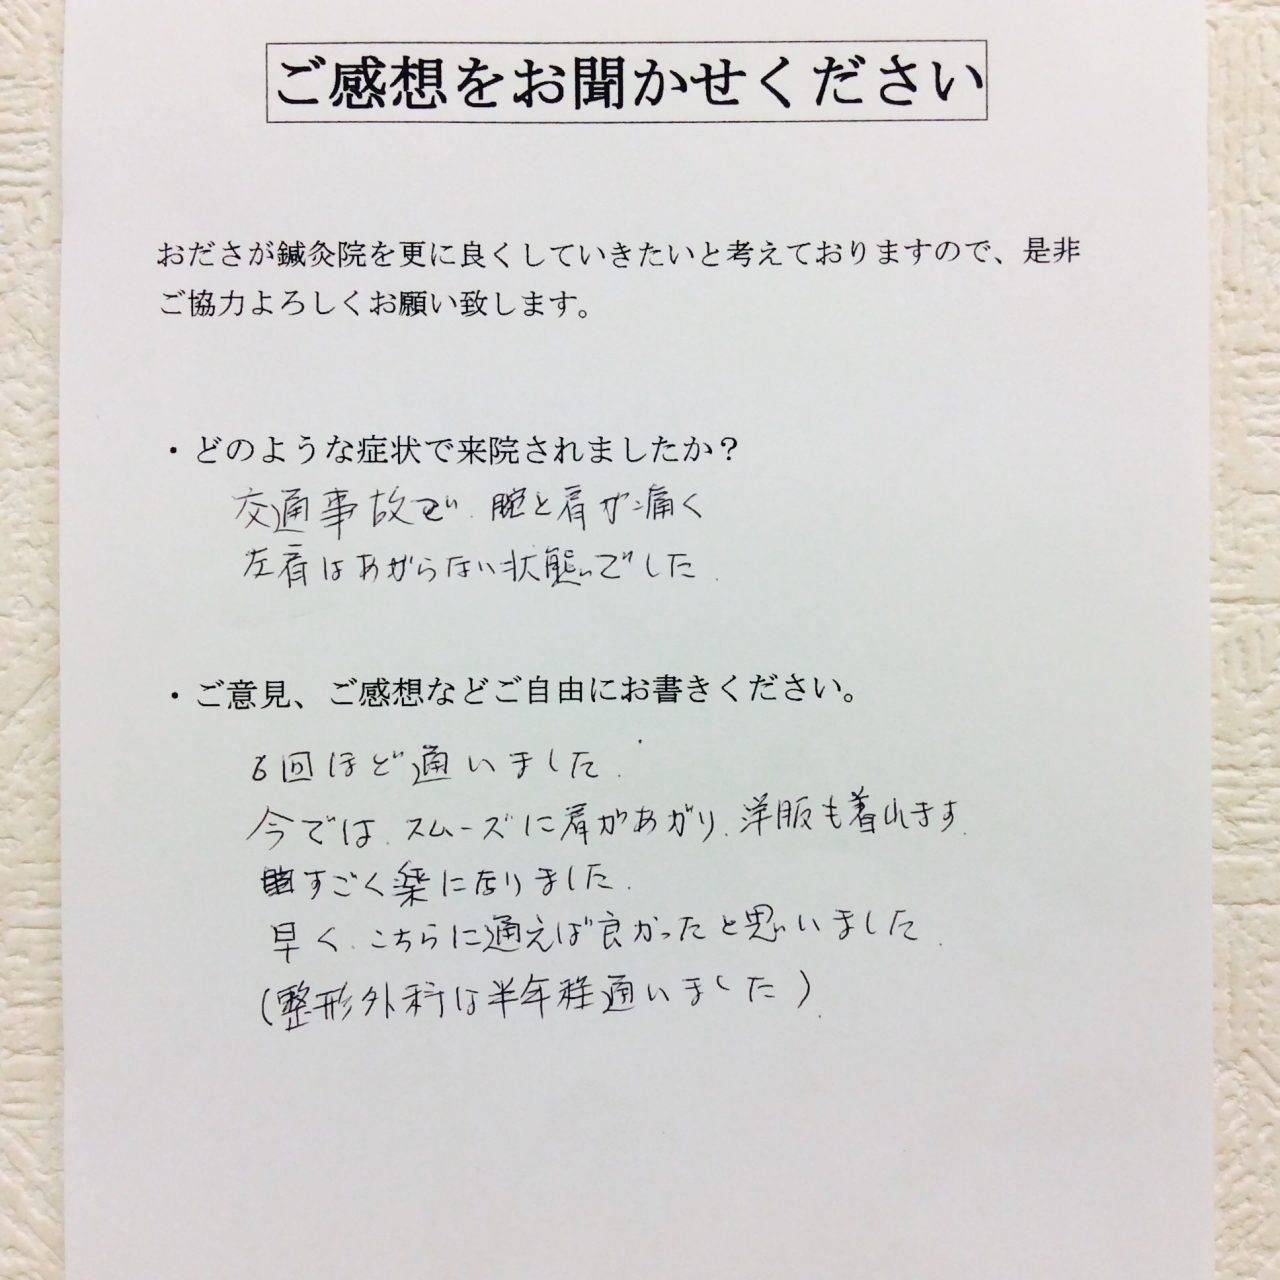 ご感想をお聞かせください
おださが鍼灸院を更に良くしていきたいと考えておりますので、是非
ご協力よろしくお願い致します。
・どのような症状で来院されましたか？
交通事故で、腕と肩が痛く
左肩はあがらない状態でした.
・ご意見、ご感想などご自由にお書きください。
6回ほど通いました.
今では、スムーズに肩があがり、洋服も着れます.
すごく楽になりました.
早く、こちらに通えば良かったと思いました.
(整形外科は半年程通いました).